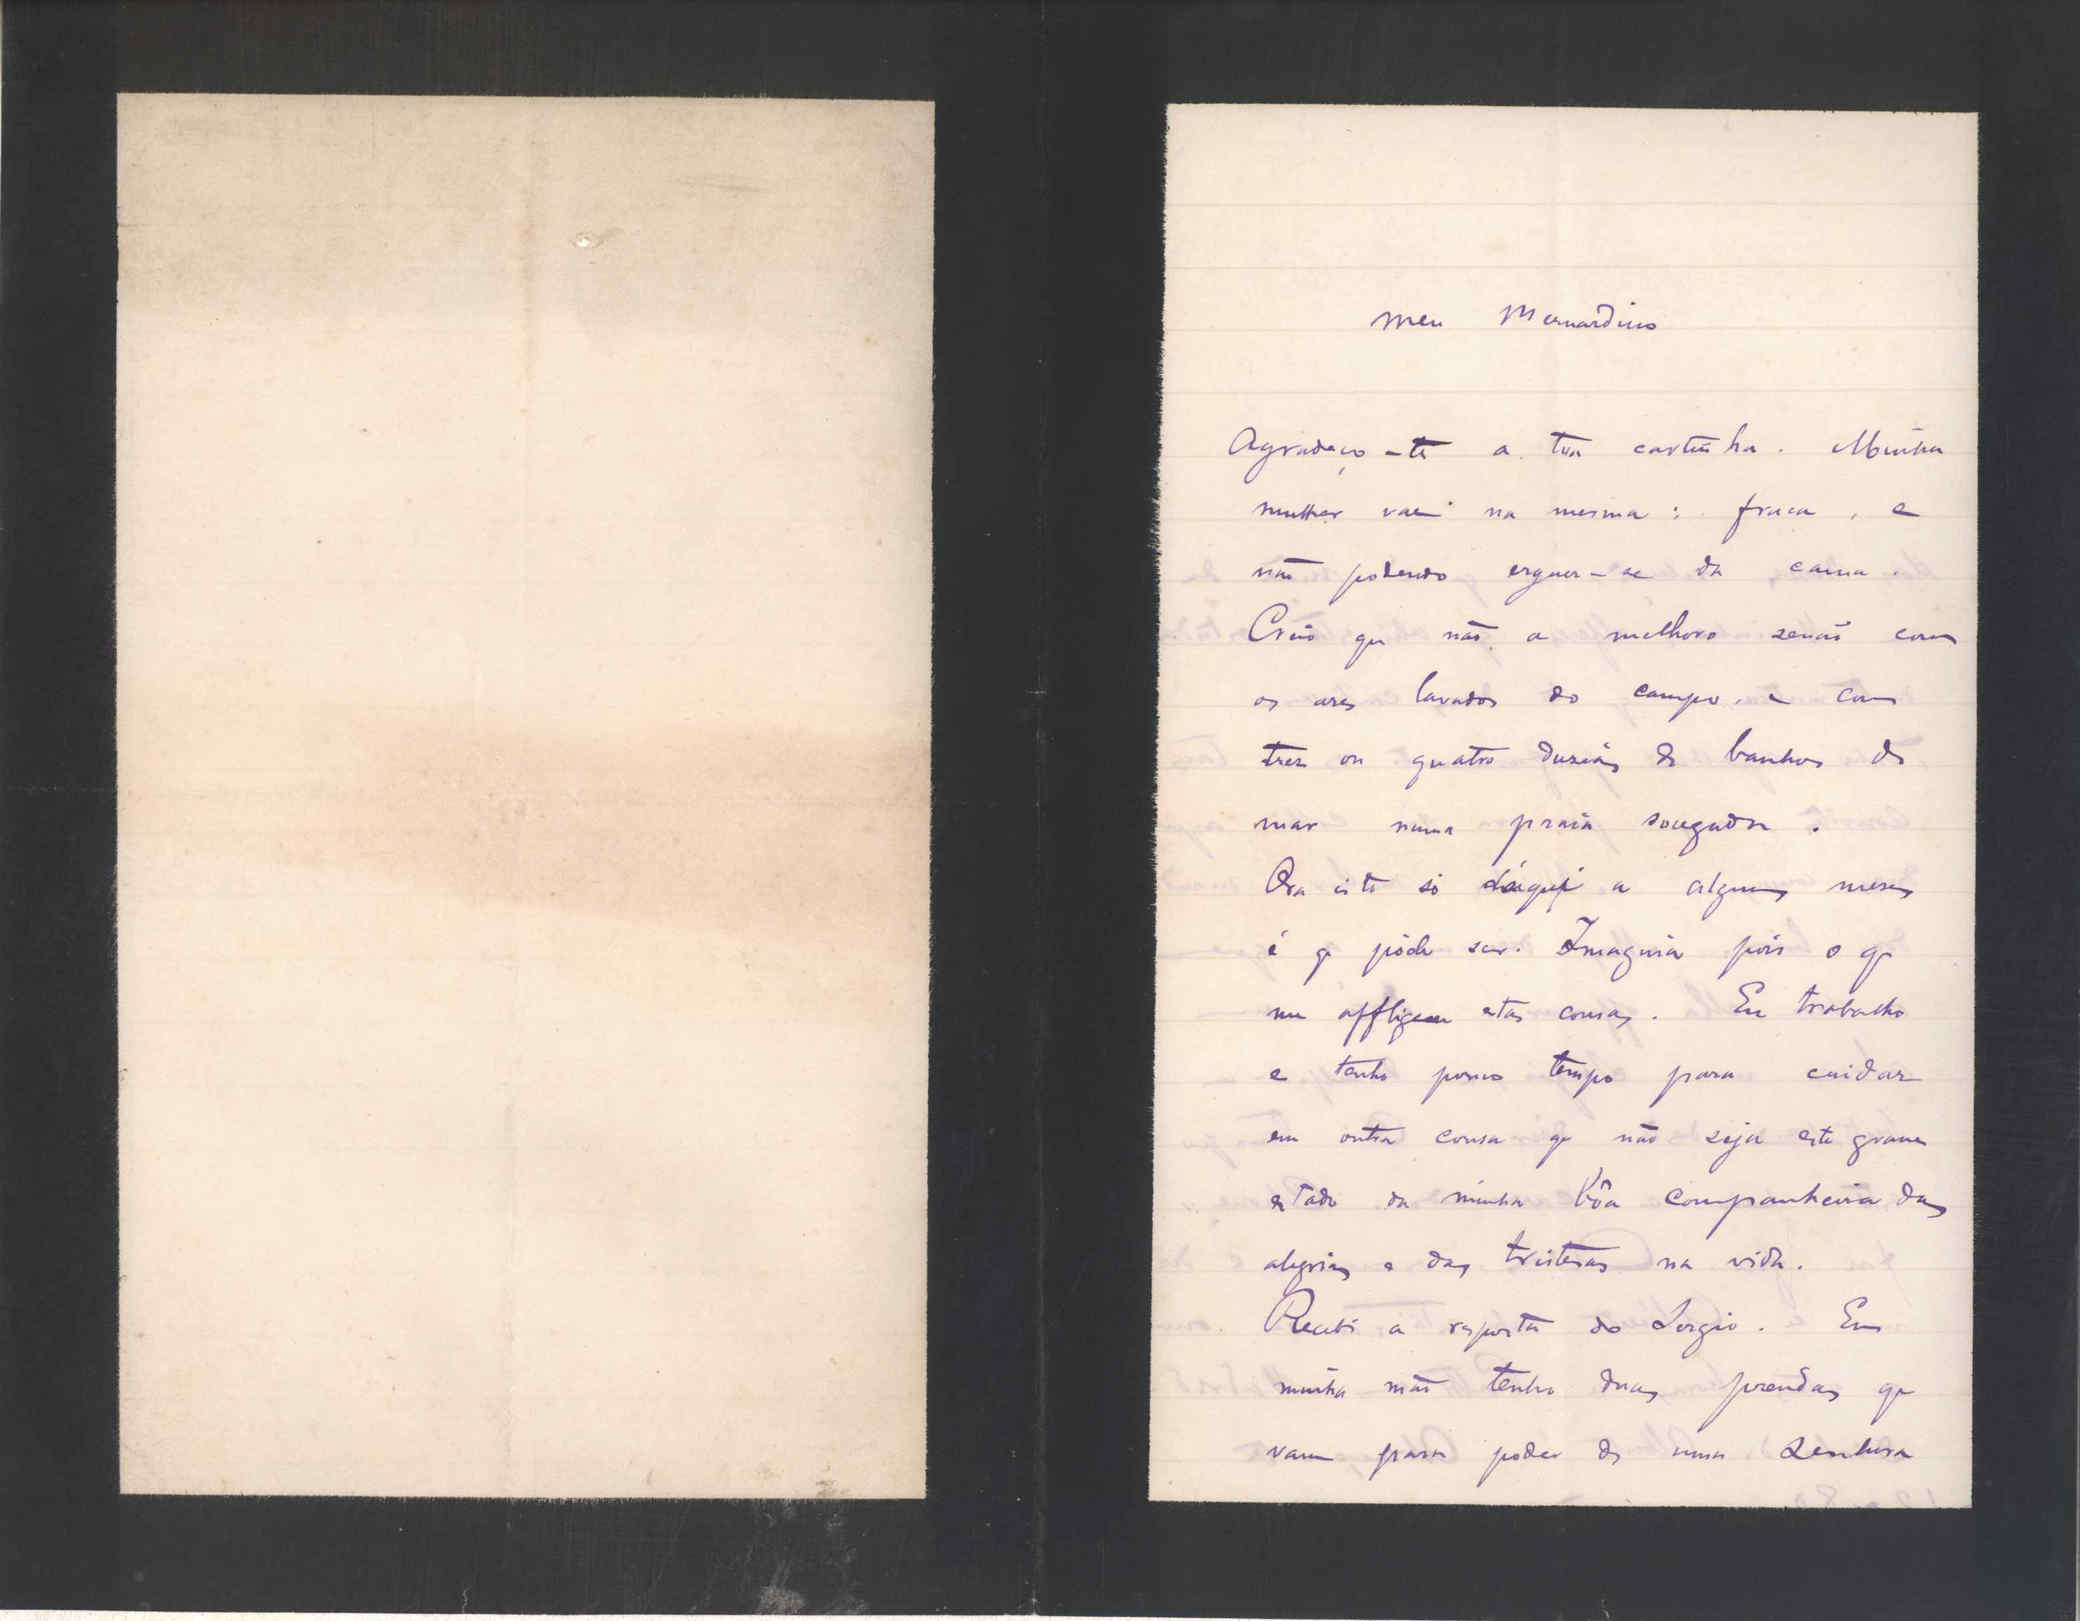 Meu Bernardino
Agradeço-te a tua cartinha. Minha
mulher vae na mesma: fraca, e
não podendo erguer-se da cama.
Creio que não a melhoro senão com
os ares lavados do campo, e com
tres ou quatro duzias de banhos de
mar numa praia socegada.
Ora isto só d'aqui a alguns mezes
é q póde ser. Imagina pois o q
me affligem estas cousas. Eu trabalho
e tenho pouco tempo para cuidar
em outra cousa q não seja este grave
estado da minha bôa companheira das
alegrias e das tristezas na vida.
Recebi a resposta do Sergio. Em
minha mão tenho duas prendas q
vam para poder de uma Senhora